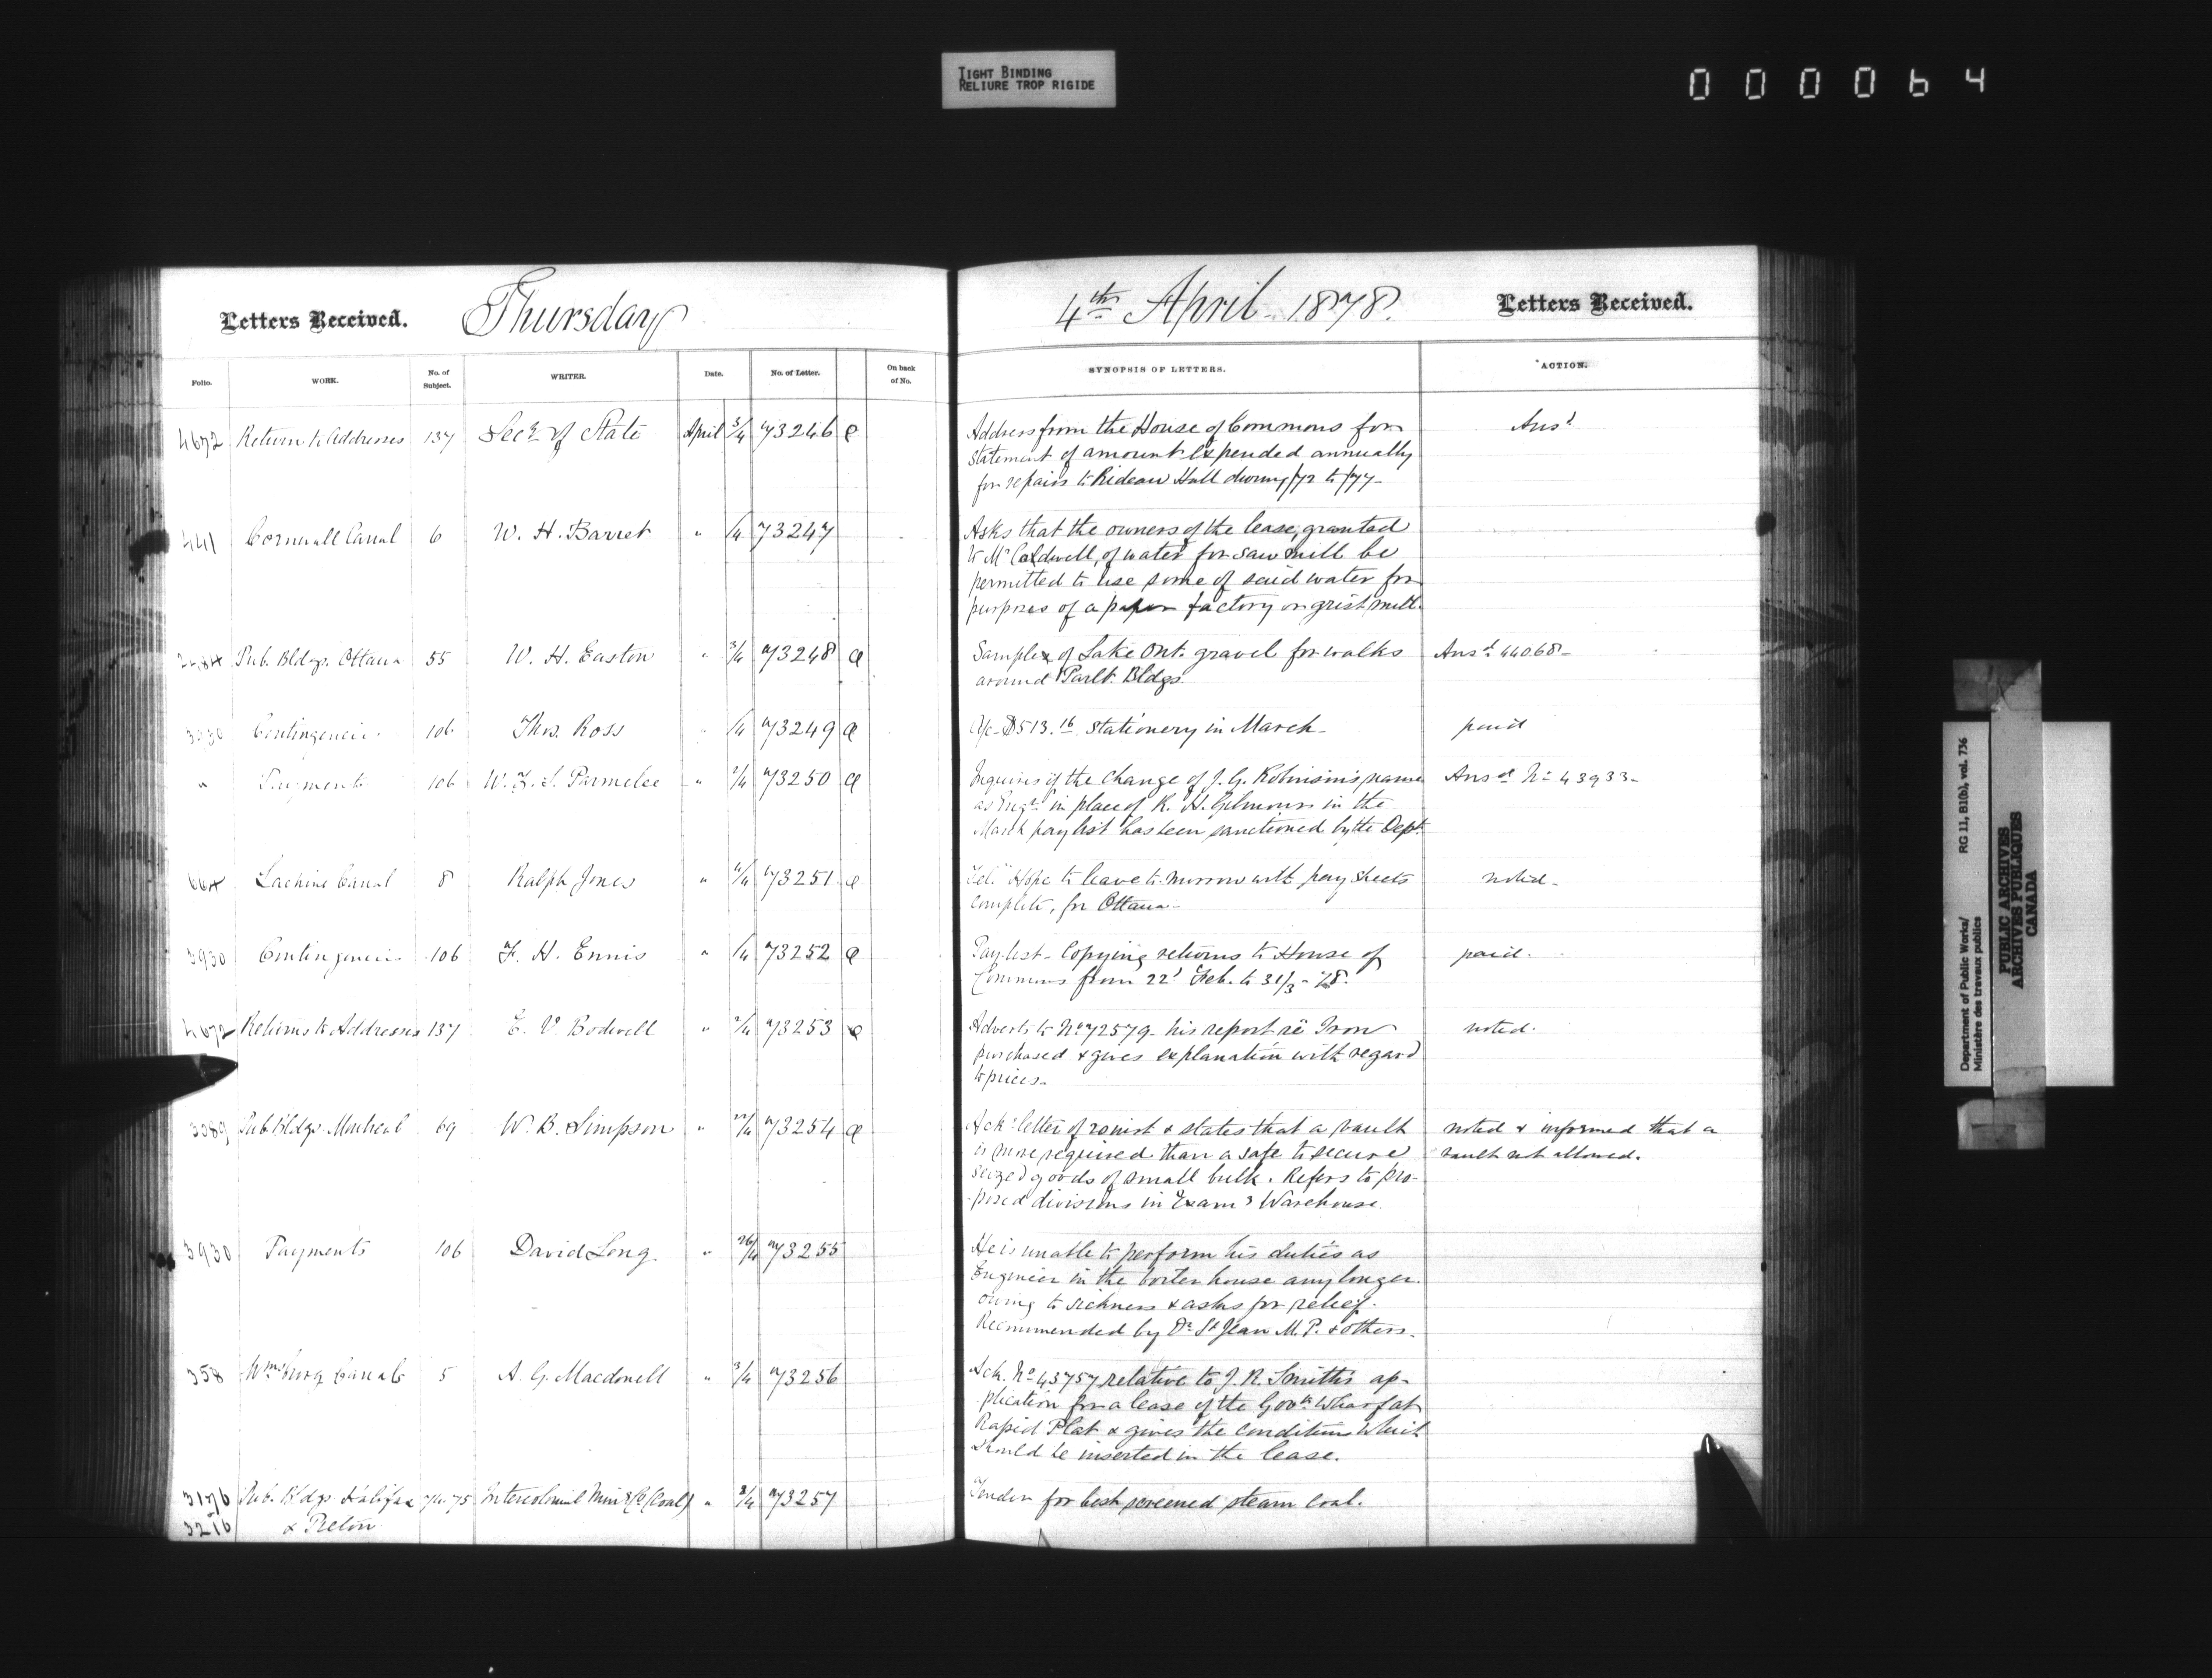 TIGHT BINDING
RELIURE TROP RIGIDE
000064
Letters Received. Thursday 4th April 1878. Letters Received.
Folio. WORK. No. of Subject. WRITER. Date. No. of Letter. On back of No. SYNOPSIS OF LETTERS. ACTION.
4672 Return to Addresses 137 Secy. of State April 3/4 73246 Address from the House of Commons for Ansd
statement of amount expended annually
for repairs to Rideau Hall during /72 to /77-
441 Cornwall Canal 6 W. H. Barret " /4 73247 Asks that the owners of the lease, granted
to Mr Caldwell, of water for saw mill be
permitted to use some of said water for
purposes of a paper factory or grist mill.
Pub. Bldgs. Ottawa 55 W. H. Easton " 3/4 73248 Sample of Lake Ont. gravel for walks Ansd 44068-
around Parlt. Bldgs.
3930 Contingencies 106 Thos. Ross " /4 73249 a/c- $513.16 stationery in March- paid
" Payments 106 W. F. S. Parmelee " 2/4 73250 Inquires if the change of J. G. Robinson's name Ansd No 43933-
as Engr. in place of R. H. Gilmour in the
March pay list has been sanctioned by the Dept.
664 Lachine Canal 8 Ralph Jones " 4/4 73251 Tel. Hope to leave to-morrow with pay sheets noted-
complete, for Ottawa-
3930 Contingencies 106 F. H. Ennis " /4 73252 Paylist- Copying returns to House of paid.
Commons from 22d Feb. to 31/3-78.
4672 Returns to Addresses 137 E. V. Bodwell " 2/4 73253 Adverts to No 72579- his report re Iron noted.
purchased & gives explanation with regard
to prices-
3389 Pub. Bldgs. Montreal 69 W. B. Simpson " 73254 Ack. letter of & states that a vault noted & informed that a
is more required than a safe to secure vault not allowed.
seized goods of small bulk. Refers to pro-
posed divisions in Exam g Warehouse.
3930 Payments 106 David Long. " 73255 He is unable to perform his duties as
Engineer in the boiler house any longer.
owing to sickness & asks for relief.
Recommended by Dr St Jean M.P. & others.
358 Wmsburg Canals 5 A. G. Macdonell " 3/4 73256 Ack. No 43757 relative to J. R. Smith's ap-
plication for a lease of the Govt. Wharf at
Rapid Plat & gives the conditions which
should be inserted in the lease.
3176 Pub. Bldgs. Halifax 74.75 Intercolonial Ming Co (Coal) " 73257 Tender for best screened steam coal.
3216 & Pictou
Department of Public Works/ RG 11, B1(b), vol. 736
Ministère des travaux publics
PUBLIC ARCHIVES
ARCHIVES PUBLIQUES
CANADA